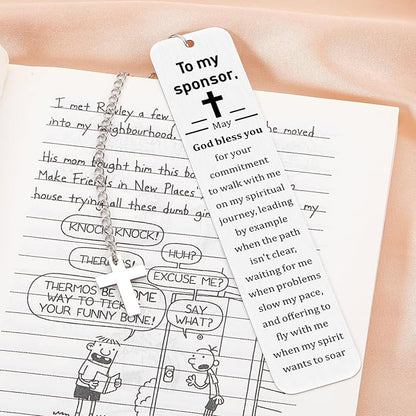 To my
sponsor,
May
God bless you
for your
commitment
to walk with me
on my spiritual
journey, leading
by example
when the path
isn't clear,
waiting for me
when problems
slow my pace,
and offering to
fly with me
when my spirit
wants to soar
I met Rowley a few
into my neighbourhood. he moved
His mom bought him this bo
Make Friends in New Places,
house trying all these dumb gim
KNOCK KNOCK!
HUH?
EXCUSE ME?
THERMOS BE SOME
WAY TO TICK
YOUR FUNNY BONE!
SAY
WHAT?